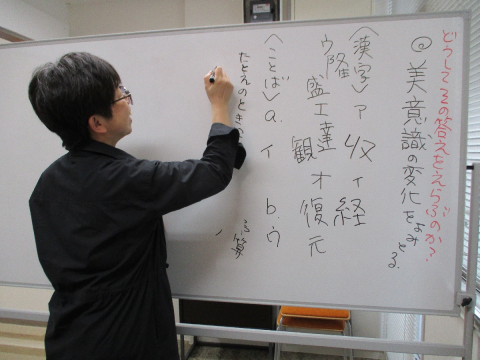 どうしてその答えをえらぶのか?
◎美意識の変化をよみとる。
〈漢字〉ア 収 イ 経
ウ 隆盛 エ 達観 オ 復元
〈ことば〉a. イ b. ウ
たとえのときに